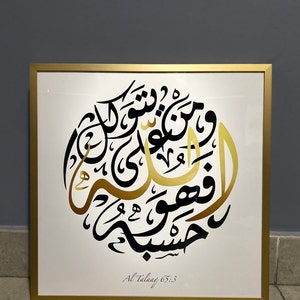 ومن يتوكل على الله فهو حسبه
Al Talaaq 65:3